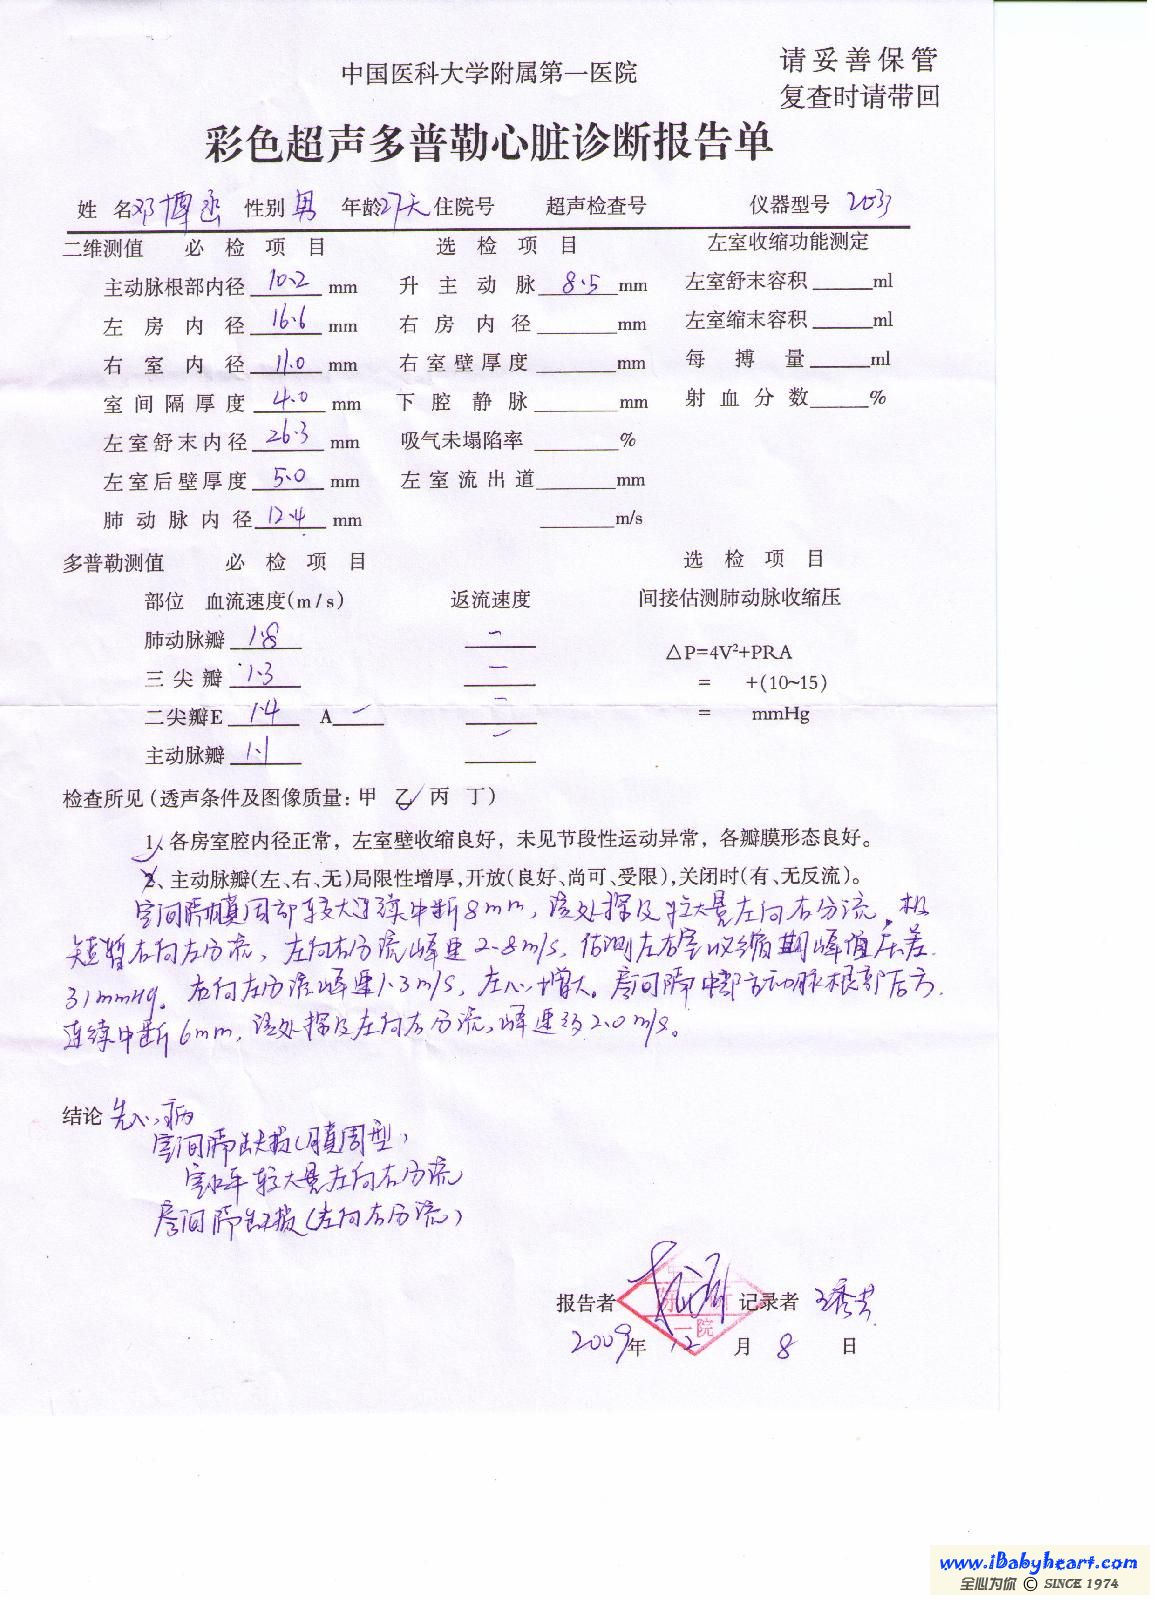 请妥善保管
复查时请带回
中国医科大学附属第一医院
彩色超声多普勒心脏诊断报告单
姓 名 邓博丞 性别 男 年龄 27天 住院号 超声检查号 仪器型号
二维测值 必 检 项 目 选 检 项 目 左室收缩功能测定
主动脉根部内径 10.2 mm 升 主 动 脉 8.5 mm 左室舒末容积 ml
左 房 内 径 16.6 mm 右 房 内 径 mm 左室缩末容积 ml
右 室 内 径 11.0 mm 右室壁厚度 mm 每 搏 量 ml
室间隔厚度 4.0 mm 下 腔 静 脉 mm 射血分数 %
左室舒末内径 26.3 mm 吸气末塌陷率 %
左室后壁厚度 5.0 mm 左室流出道 mm
肺动脉内径 12.4 mm m/s
多普勒测值 必 检 项 目 选 检 项 目
部位 血流速度(m/s) 返流速度 间接估测肺动脉收缩压
肺动脉瓣 1.8 - △P=4V²+PRA
三 尖 瓣 1.3 - = +(10~15)
二尖瓣E 1.4 A - - = mmHg
主动脉瓣 1.1 -
检查所见(透声条件及图像质量: 甲 乙✓ 丙 丁)
1、各房室腔内径正常，左室壁收缩良好，未见节段性运动异常，各瓣膜形态良好。
2、主动脉瓣(左、右、无)局限性增厚,开放(良好、尚可、受限),关闭时(有、无反流)。
室间隔膜周部较大连续中断8mm，该处探及较大量左向右分流，极
短暂右向左分流，左向右分流峰速2.8m/s，估测左右室收缩期峰值压差
31mmHg。右向左分流峰速1.3m/s，左心增大。房间隔中部主动脉根部后方
连续中断6mm，该处探及左向右分流，峰速约2.0m/s。
结论 先心病
室间隔缺损(膜周型，
室水平较大量左向右分流
房间隔缺损(左向右分流)
报告者 记录者 王秀芸
一院
2009年 12 月 8 日
www.iBabyheart.com
全心为你 © SINCE 1974